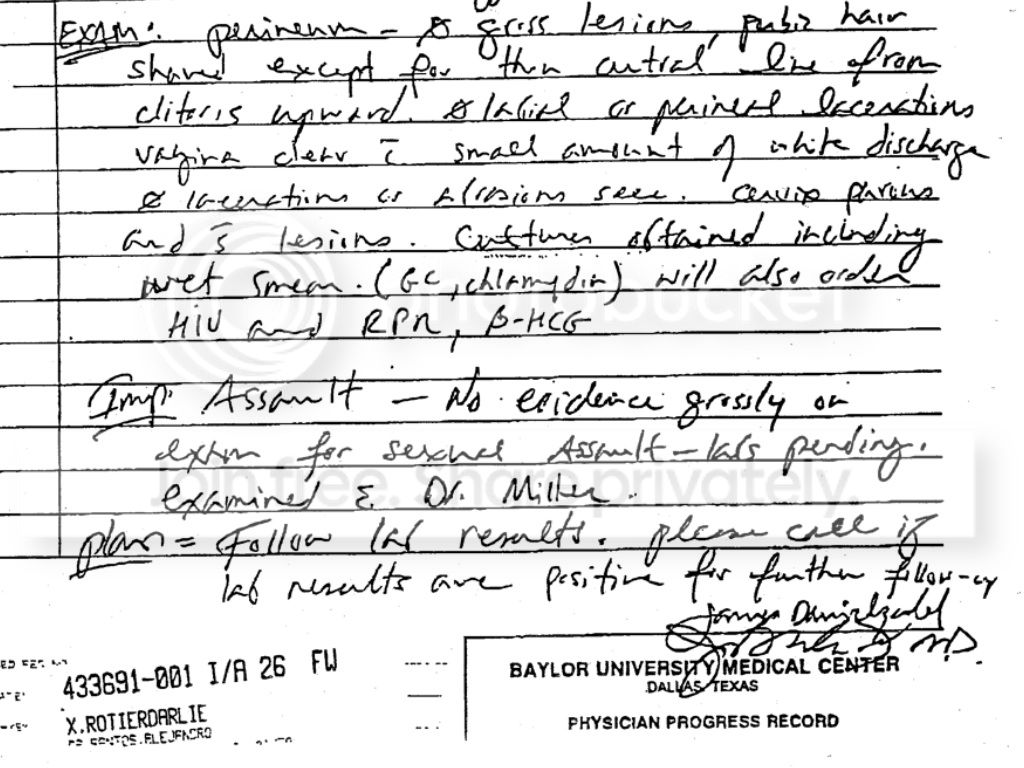 Exam: perineum - ø gross lesions, pubic hair
shaved except for thin central line from
clitoris upward. ø labial or perineal lacerations
vagina clear c̄ small amount of white discharge
ø lacerations or abrasions seen. Cervix parous
and s̄ lesions. Cultures obtained including
wet smear. (GC, chlamydia) will also order
HIV and RPR, β-HCG
Imp: Assault - No evidence grossly on
exam for sexual Assault - labs pending.
examined c̄ Dr. Miller.
plan = Follow lab results. please call if
lab results are positive for further follow-up
M.D.
433691-001 I/A 26 FW
X.ROTIERDARLIE
BAYLOR UNIVERSITY MEDICAL CENTER
DALLAS, TEXAS
PHYSICIAN PROGRESS RECORD
photobucket
Join free. Share privately.